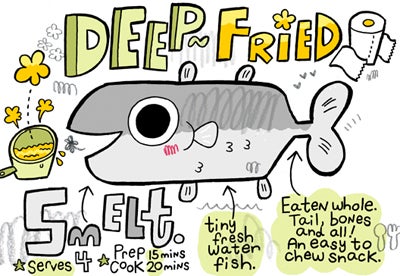 DEEP~FRiED
SmELt.
Serves 4
PREP 15mins
Cook 20mins
tiny
fresh
water
fish.
Eaten whole.
Tail, bones
and all!
An easy to
chew snack.